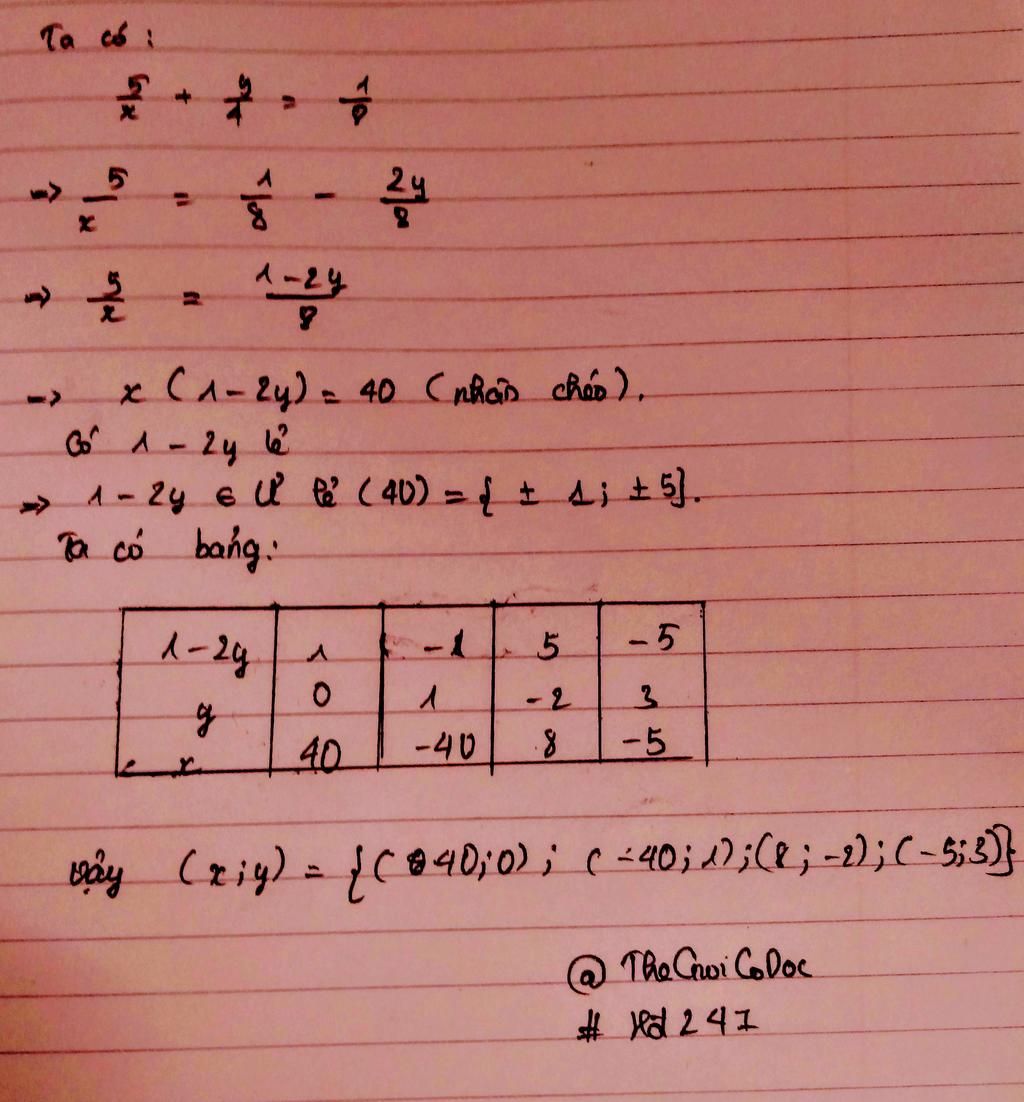 Ta có :
5/x + y/4 = 1/8
=> 5/x = 1/8 - 2y/8
=> 5/x = 1-2y/8
=> x (1-2y) = 40 (nhân chéo).
Có 1-2y lẻ
=> 1-2y ∈ Ư lẻ (40) = { ± 1; ± 5}.
Ta có bảng:
1-2y 1 -1 5 -5
y 0 1 -2 3
x 40 -40 8 -5
Vậy (x;y) = {(40;0); (-40;1);(8;-2);(-5;3)}
@
# 247